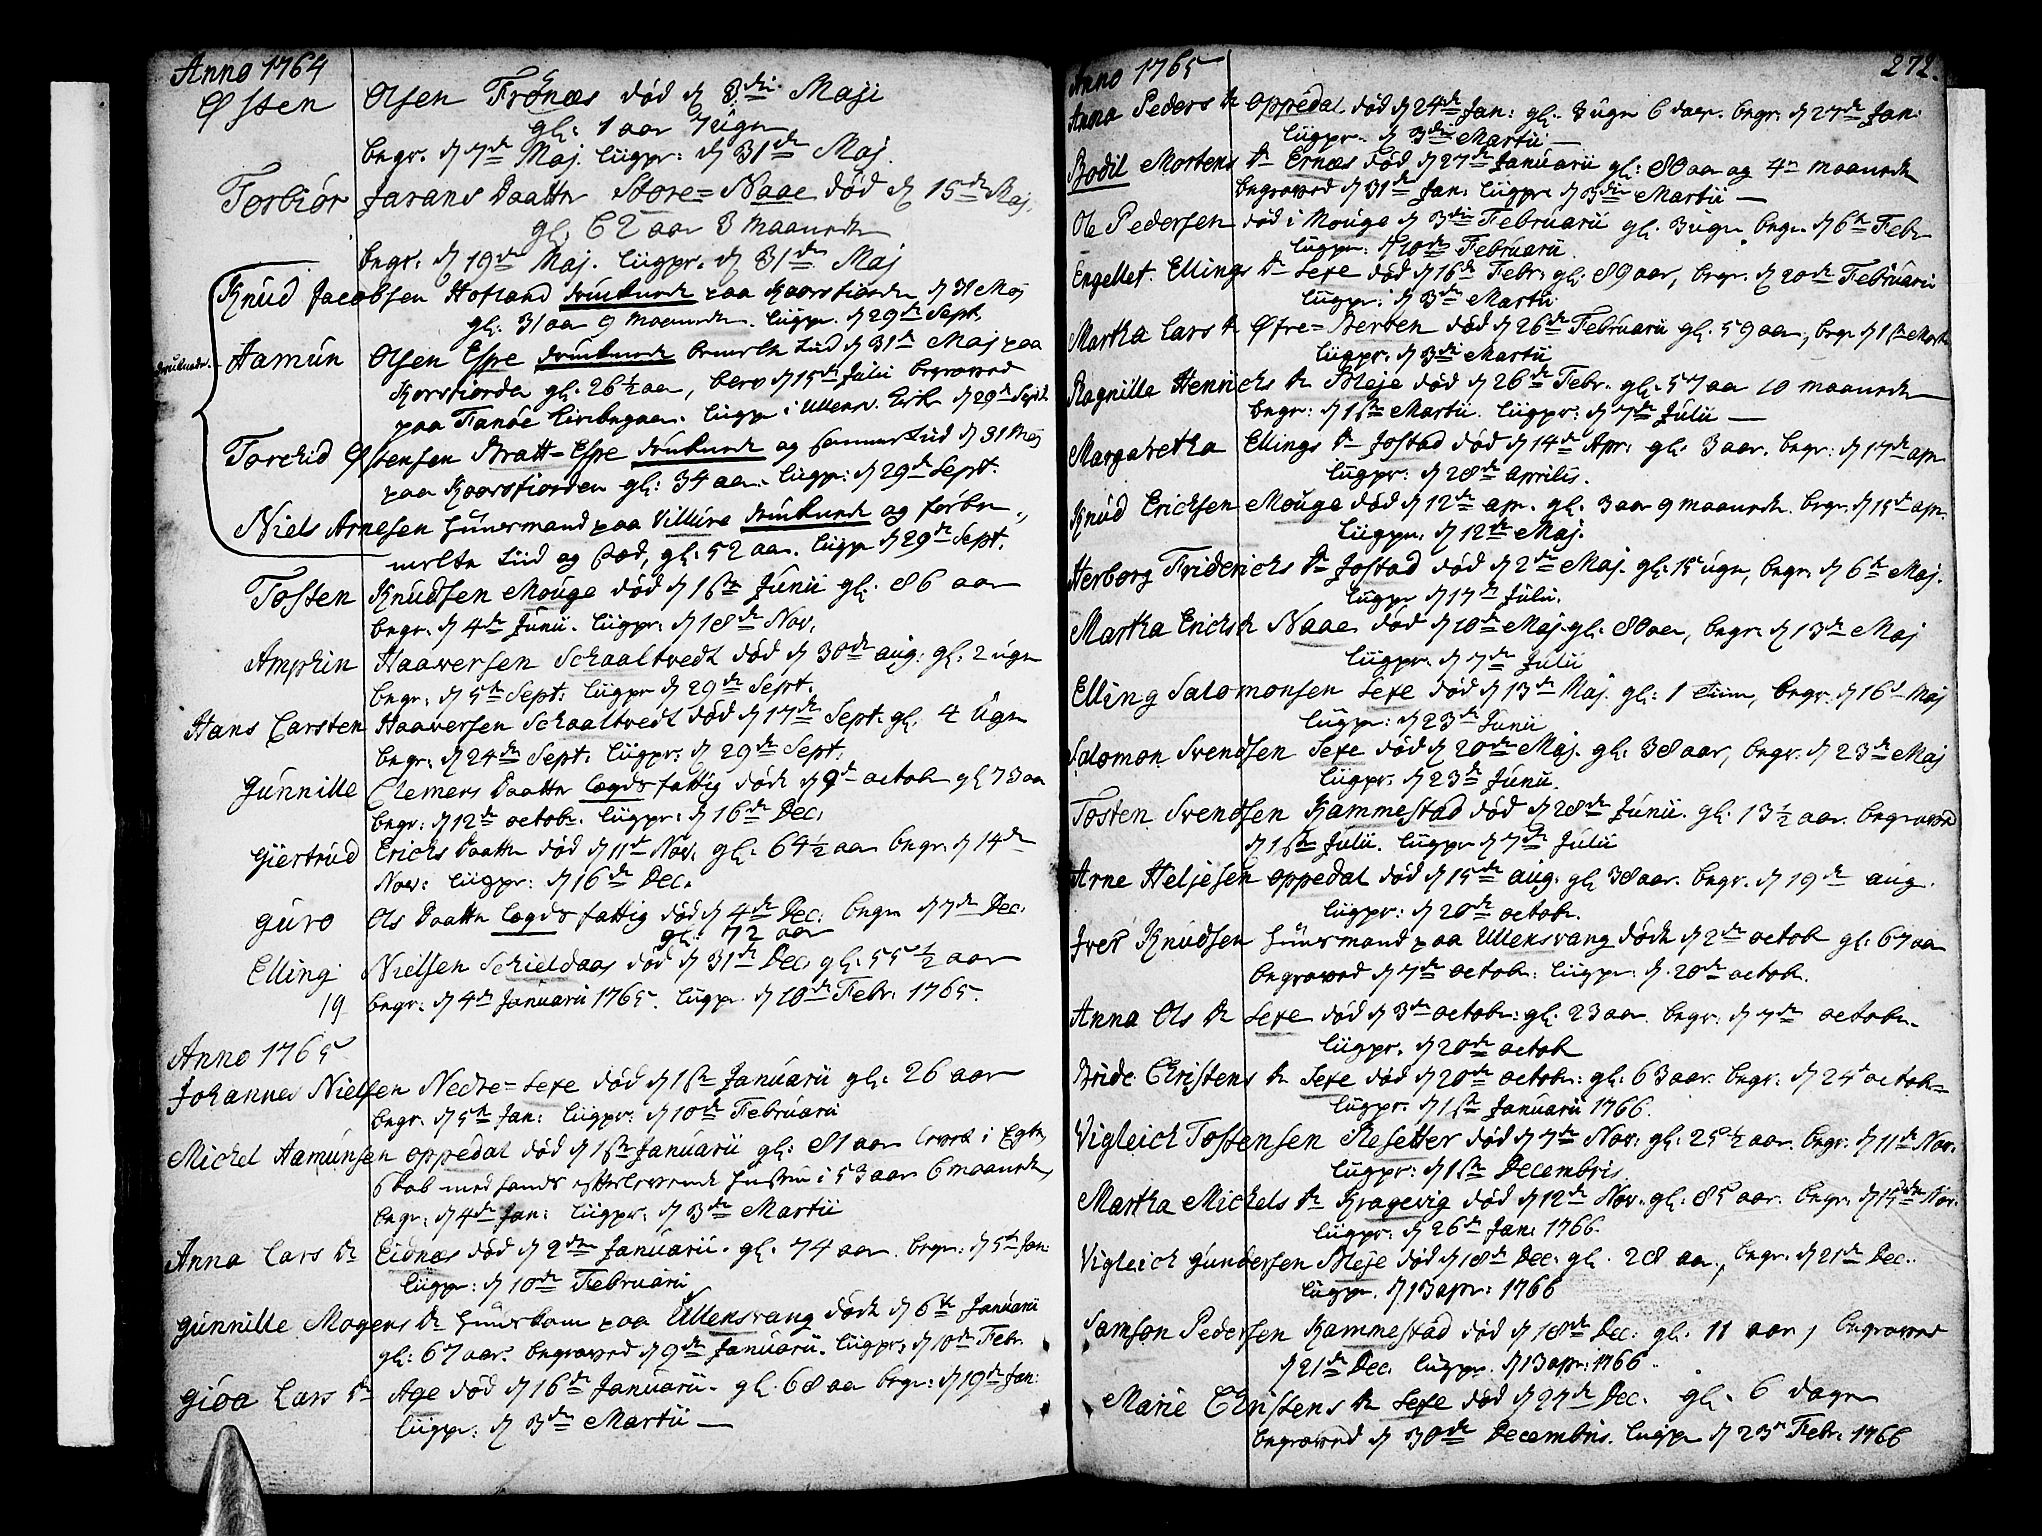 Anno 1764
Østen Olsen Frönæs död d 3die Maji
gl: 1 aar 7 ugr
begr. d 7de Maj. liigpr: d 31de Maj.
Torbiör Jarans Daatter Store=Naae död d 15de Maj.
gl. 62 aar 8 maaneder
begr. d 19de Maj. liigpr. d 31de Maj
Knud Jacobsen Hofland druknede paa Koorsfiorden d 31 Maj
gl: 31 aar 9 maaneder. liigpr. d 29de Sept.
druknede Aamun Olsen Espe druknede bemelte tiid d 31de Maj paa
Korsfiorden gl. 26½ aar, blev d 15de Julii begraved
paa Fanöe liigpr i Ullensv. Kirke d 29de Sept
Torchid Østensen Bratt=Espe druknede og samme tiid d 31 Maj
paa Koorsfiorden gl: 34 aar. liigpr: d 29de Sept.
Niels Arnesen Huusmand paa Villure druknede og forbe=
melte tiid og sted, gl. 52 aar. liigpr d 29de Sept.
Tosten Knudsen Mouge död d 1ste Junii gl: 86 aar
begr. d 4de Junii. liigpr. d 18de Nov.
Amphin Haaversen Schaaltvedt död d 30de aug: gl: 2 ugr
begr: d 5te Sept: liigpr d 29de Sept.
Hans Carsten Haaversen Schaaltvedt död d 17de Sept. gl. 4 Ugr
begr: d 24de Sept: liigpr: d 29de Sept.
Gunnille Clemens Daatter lægds fattig döde d 9de octob gl 73 aar
begr: d 12te octobr. liigpr: d 16de Dec.
Giertrud Erichs Daatter död d 11te Nov. gl. 64½ aar begr. d 14de
Nov: liigpr: d 16de Dec.
Guro Ols Daatter lægds fattig död d 4de Dec: begr d 7de Dec.
gl: 72 aar
Elling Nielsen Schieldaas död d 31de Dec. gl. 55½ aar
19 begr: d 4de Januarii 1765. liigpr. d 10de Febr. 1765.
Anno 1765
Johannes Nielsen Nedre=Sexe död d 1ste Januarii gl: 26 aar
begr. d 5te Jan: liigpr: d 10de Februarii
Michel Aamunsen oppedal död d 1ste Januarii gl: 81 aar levet i Egte
skab med hands efterlevende Hustru i 53 aar 6 maaneder,
begr: d 4de Jan: liigpr: d 3de Martii
Anna Lars Dr Eidnæs död d 2den Januarii. gl. 74 aar begr: d 5te Jan:
liigpr: d 10de Februarii
Gunnille Mogens Dr Huuskone paa Ullensvang döde d 6te Januarii
gl: 67 aar. begraved d 9de Januarii. liigpr: d 10de Febr.
Gioa Lars Dr Age död d 16de Januarii. gl. 68 aar begr: d 19de Jan:
liigpr: d 3de Martii
Anno 1765 272.
Anna Peders Dr oppedal död d 24de Jan: gl: 8 ugr 6 dage. begr: d 27de Jan:
liigpr. d 3die Martii
Bodil Mortens Dr Ernæs död d 27de Januarii gl: 80 aar og 4re maaneder
begraved d 31de Jan. liigpr d 3die Martii
Ole Pedersen död i Mouge d 3die Februarii gl. 3 ugr. begr. d 6te Febr
liigpr: d 10de Februarii.
Engellet Ellings Dr Sexe död d 16de Febr. gl. 89 aar, begr. d 20de Februarii
liigpr: d 3de Martii
Martha Lars Dr Øfre=Bersen död d 26de Februarii gl. 59 aar, begr d 1ste Martii
liigpr. d 3die Martii
Ragnille Henrichs Dr Bleje död d 26de Febr. gl. 57 aar 10 maaneder
begr: d 1ste Martii. liigpr: d 7de Julii
Margaretha Ellings Dr Jostad död d 14de Apr: gl. 3 aar. begr: d 17de apr
liigpr: d 28de aprilis.
Knud Erichsen Mouge död d 12te apr. gl. 3 aar 9 maaneder. begr. d 15de apr.
liigpr. d 12te Maj.
Herborg Friderichs Dr Jostad död d 2de Maj. gl: 15 ugr, begr. d 6te Maj.
liigpr d 17de Julii.
Martha Erichs Dr Naae död d 10de Maj gl. 80 aar, begr. d 13de Maj
liigpr. d 7de Julii
Elling Salomonsen Sexe död d 13de Maj. gl: 1 time, begr: d 16de Maj
liigpr: d 23de Junii
Salomon Svendsen Sexe död d 20de Maj. gl: 38 aar, begr: d 23de Maj
liigpr. d 23de Junii.
Tosten Svendsen Hammestad död d 28de Junii. gl. 13½ aar. begraved
d 1ste Julii. liigpr d 7de Julii
Arne Heljesen oppedal död d 15de aug. gl 38 aar. begr. d 19de aug.
liigpr: d 20de octob.
Iver Knudsen Huusmand paa Ullensvang döde d 2de octob gl. 67 aar
begraved d 7de octob: liigpr: d. 20de octob.
Anna Ols Dr Sexe död d 3de octob: gl. 23 aar. begr: d 7de octobr.
liigpr. d 20de octob
Bride Christens Dr Sexe död d 20de octobr: gl: 63 aar. begr. d 24de octob=
liigpr. d 1ste Januarii 1766.
Vigleich Tostensen Resetter död d 7de Nov. gl. 25½ aar. begr: d 11te Nov:
liigpr: d 1ste Decembris
Martha Michels Dr Kragevig död d 12te Nov. gl: 85 aar. begr. d 15de Nov.
liigpr. d 26de Jan: 1766.
Vigleich Gundersen Bleje död d 18de Dec: gl. 28 aar, begr. d 21de Dec.
liigpr. d 13 apr: 1766
Samson Pedersen Hammestad död d 18de Dec: gl. 11 aar, begraved
d 21de Dec. liigpr. d 13 apr: 1766.
Marie Christens Dr Sexe död d 27de Dec. gl. 6 dage
begraved d 30de Decembris. liigpr d 23de Febr. 1766